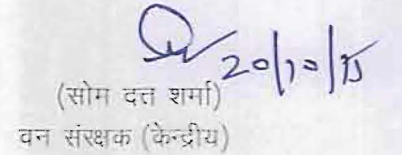 20/10/15
(सोम दत्त शर्मा)
वन संरक्षक (केन्द्रीय)